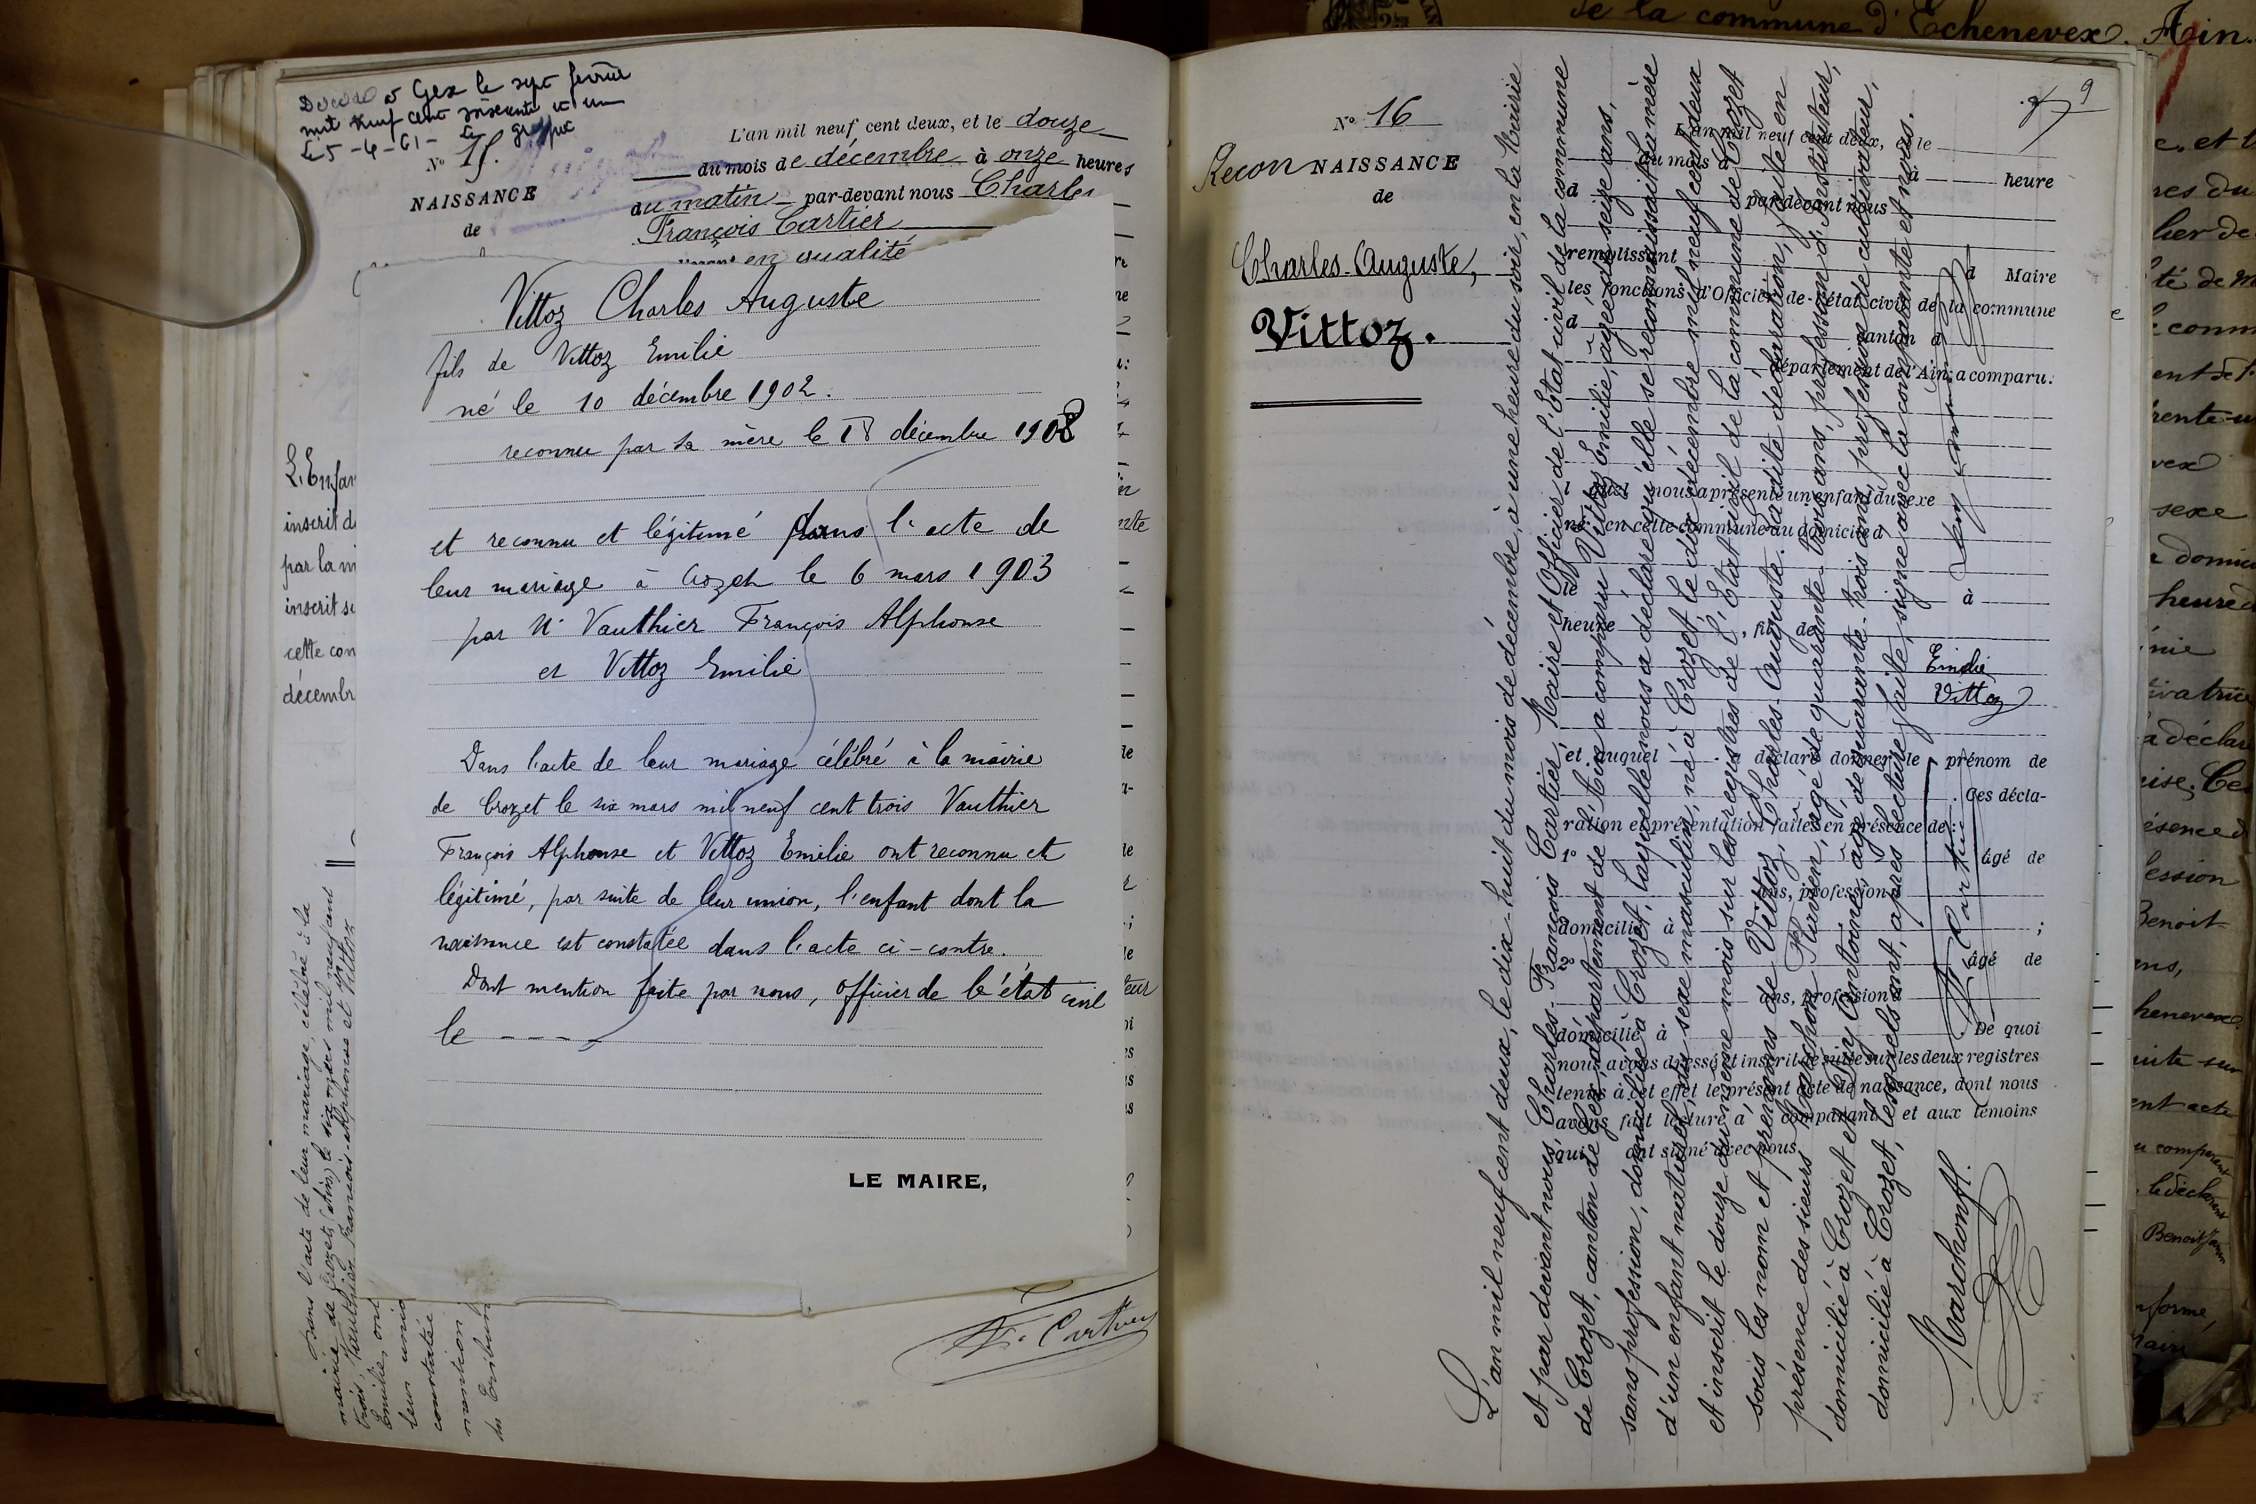 de la commune d'Echenevex. Ain.
Décédé à Gex le sept février
mil neuf cent soixante et un
Le 5-4-61- Le greffier
No 15.
NAISSANCE
de
L'an mil neuf cent deux, et le douze
du mois de décembre à onze heures
du matin par-devant nous Charles
François Cartier
en qualité
L'Enfan
inscrit d
par la m
inscrit su
cette con
décembr
Vittoz Charles Auguste
fils de Vittoz Emilie
né le 10 décembre 1902.
reconnu par sa mère le 18 décembre 1902
et reconnu et légitimé dans l'acte de
leur mariage à Crozet le 6 mars 1903
par M. Vauthier François Alphonse
et Vittoz Emilie
Dans l'acte de leur mariage célébré à la mairie
de Crozet le six mars mil neuf cent trois Vauthier
François Alphonse et Vittoz Emilie ont reconnu et
légitimé, par suite de leur union, l'enfant dont la
naissance est constatée dans l'acte ci-contre.
Dont mention faite par nous, officier de l'état civil
le ----
LE MAIRE,
Dans l'acte de leur mariage, célébré à la
mairie de Crozet (Ain) le six mars mil neuf cent
trois, Vauthier François Alphonse et Vittoz
Emilie, ont
leur union
constatée
mention
du Tribun
F. Cartier
9
No 16
Recon NAISSANCE
de
Charles-Auguste,
Vittoz.
L'an mil neuf cent deux, et le
du mois d à heure
d par-devant nous
remplissant d Maire
les fonctions d'Officier de l'état civil de la commune
d canton d
département de l'Ain, a comparu:
l quel nous a présenté un enfant du sexe
né en cette commune au domicile d
le à
heure , fil de
et auquel a déclaré donner le prénom de
. Ces décla-
ration et présentation faites en présence de:
1o âgé de
ans, profession d
domicilié à ;
2o âgé de
ans, profession d
domicilié à De quoi
nous avons dressé et inscrit de suite sur les deux registres
tenus à cet effet le présent acte de naissance, dont nous
avons fait lecture a comparant et aux témoins
qui ont signé avec nous.
L'an mil neuf cent deux, le dix-huit du mois de décembre, à une heure du soir, en la Mairie
et par devant nous Charles-François Cartier, Maire et Officier de l'Etat civil de la commune
de Crozet, canton de Gex, département de l'Ain a comparu Vittoz Emilie, âgée de seize ans,
sans profession, domiciliée à Crozet, laquelle nous a déclaré qu'elle se reconnaissait la mère
d'un enfant naturel, du sexe masculin, né à Crozet le dix décembre mil neuf cent deux
et inscrit le douze du même mois sur les registres de l'Etat civil de la commune de Crozet
sous les nom et prénoms de Vittoz, Charles-Auguste. La dite déclaration, faite en
présence des sieurs Marchon Flavien, âgé de quarante-trois ans, profession d'instituteur,
domicilié à Crozet et Léry Antoine, âgé de quarante-trois ans, profession de cultivateur,
domicilié à Crozet, lesquels ont, après lecture faite, signé avec la comparante et nous.
Emilie
Vittoz
Léry
F. Cartier
Marchon fl.